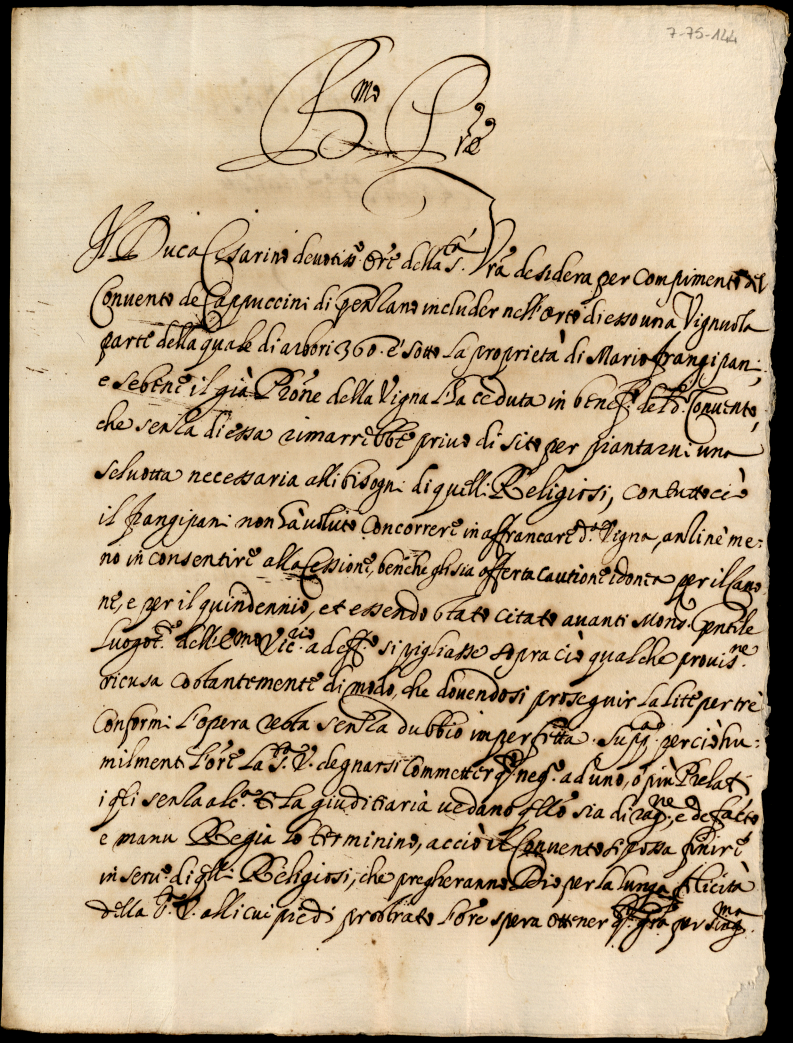 7-75-144
B.mo P.re
Il Duca Cesarino deuotiss.o Ore della S.tà Vr̃a desidera per compimento del
Conuento de Cappuccini di Genzano includer nell'orto di esso una Vignuola
parte della quale di arbori 360. e' sotto la proprietà di Mario frangipani;
e sebene il già Prone della Vigna l'ha ceduta in benef.o del d.o Conuento,
che senza di essa rimarrebbe priuo di sito per piantarui una
seluotta necessaria alli bisogni di quelli Religiosi, contuttociò
il frangipani non hà uoluto concorrere in affrancare d.a Vigna, anzi nè me:
no in consentire alla Cessione, benche gli sia offerta cautione idonea per il Cano
ne, e per il quindennio, et essendo stato citato auanti Mons.r Gentile
Luogot.te dell'Em̃o Vic.rio ad eff.o si pigliasse sopra ciò qualche prouis.ne
ricusa costantemente di modo, che douendosi proseguir la lite per trè
Conformi l'opera resta senza dubbio imperfetta. Supp.ca perciò hu:
milmente l'Ore la S.tà V. degnarsi commetter q.o neg.o ad uno, ò più Prelati
i q̃li senza alc.a T.la giuditiaria uedano q̃llo sia di rag.ne, e de facto
e manu Regia lo terminino, acciò il Conuento si possa finire
in seru.o di q̃lli Religiosi, che pregheranno Dio per la lunga felicità
della S.tà V. alli cui piedi prostrato l'Ore spera ottener q.a gr̃a per sing.ma